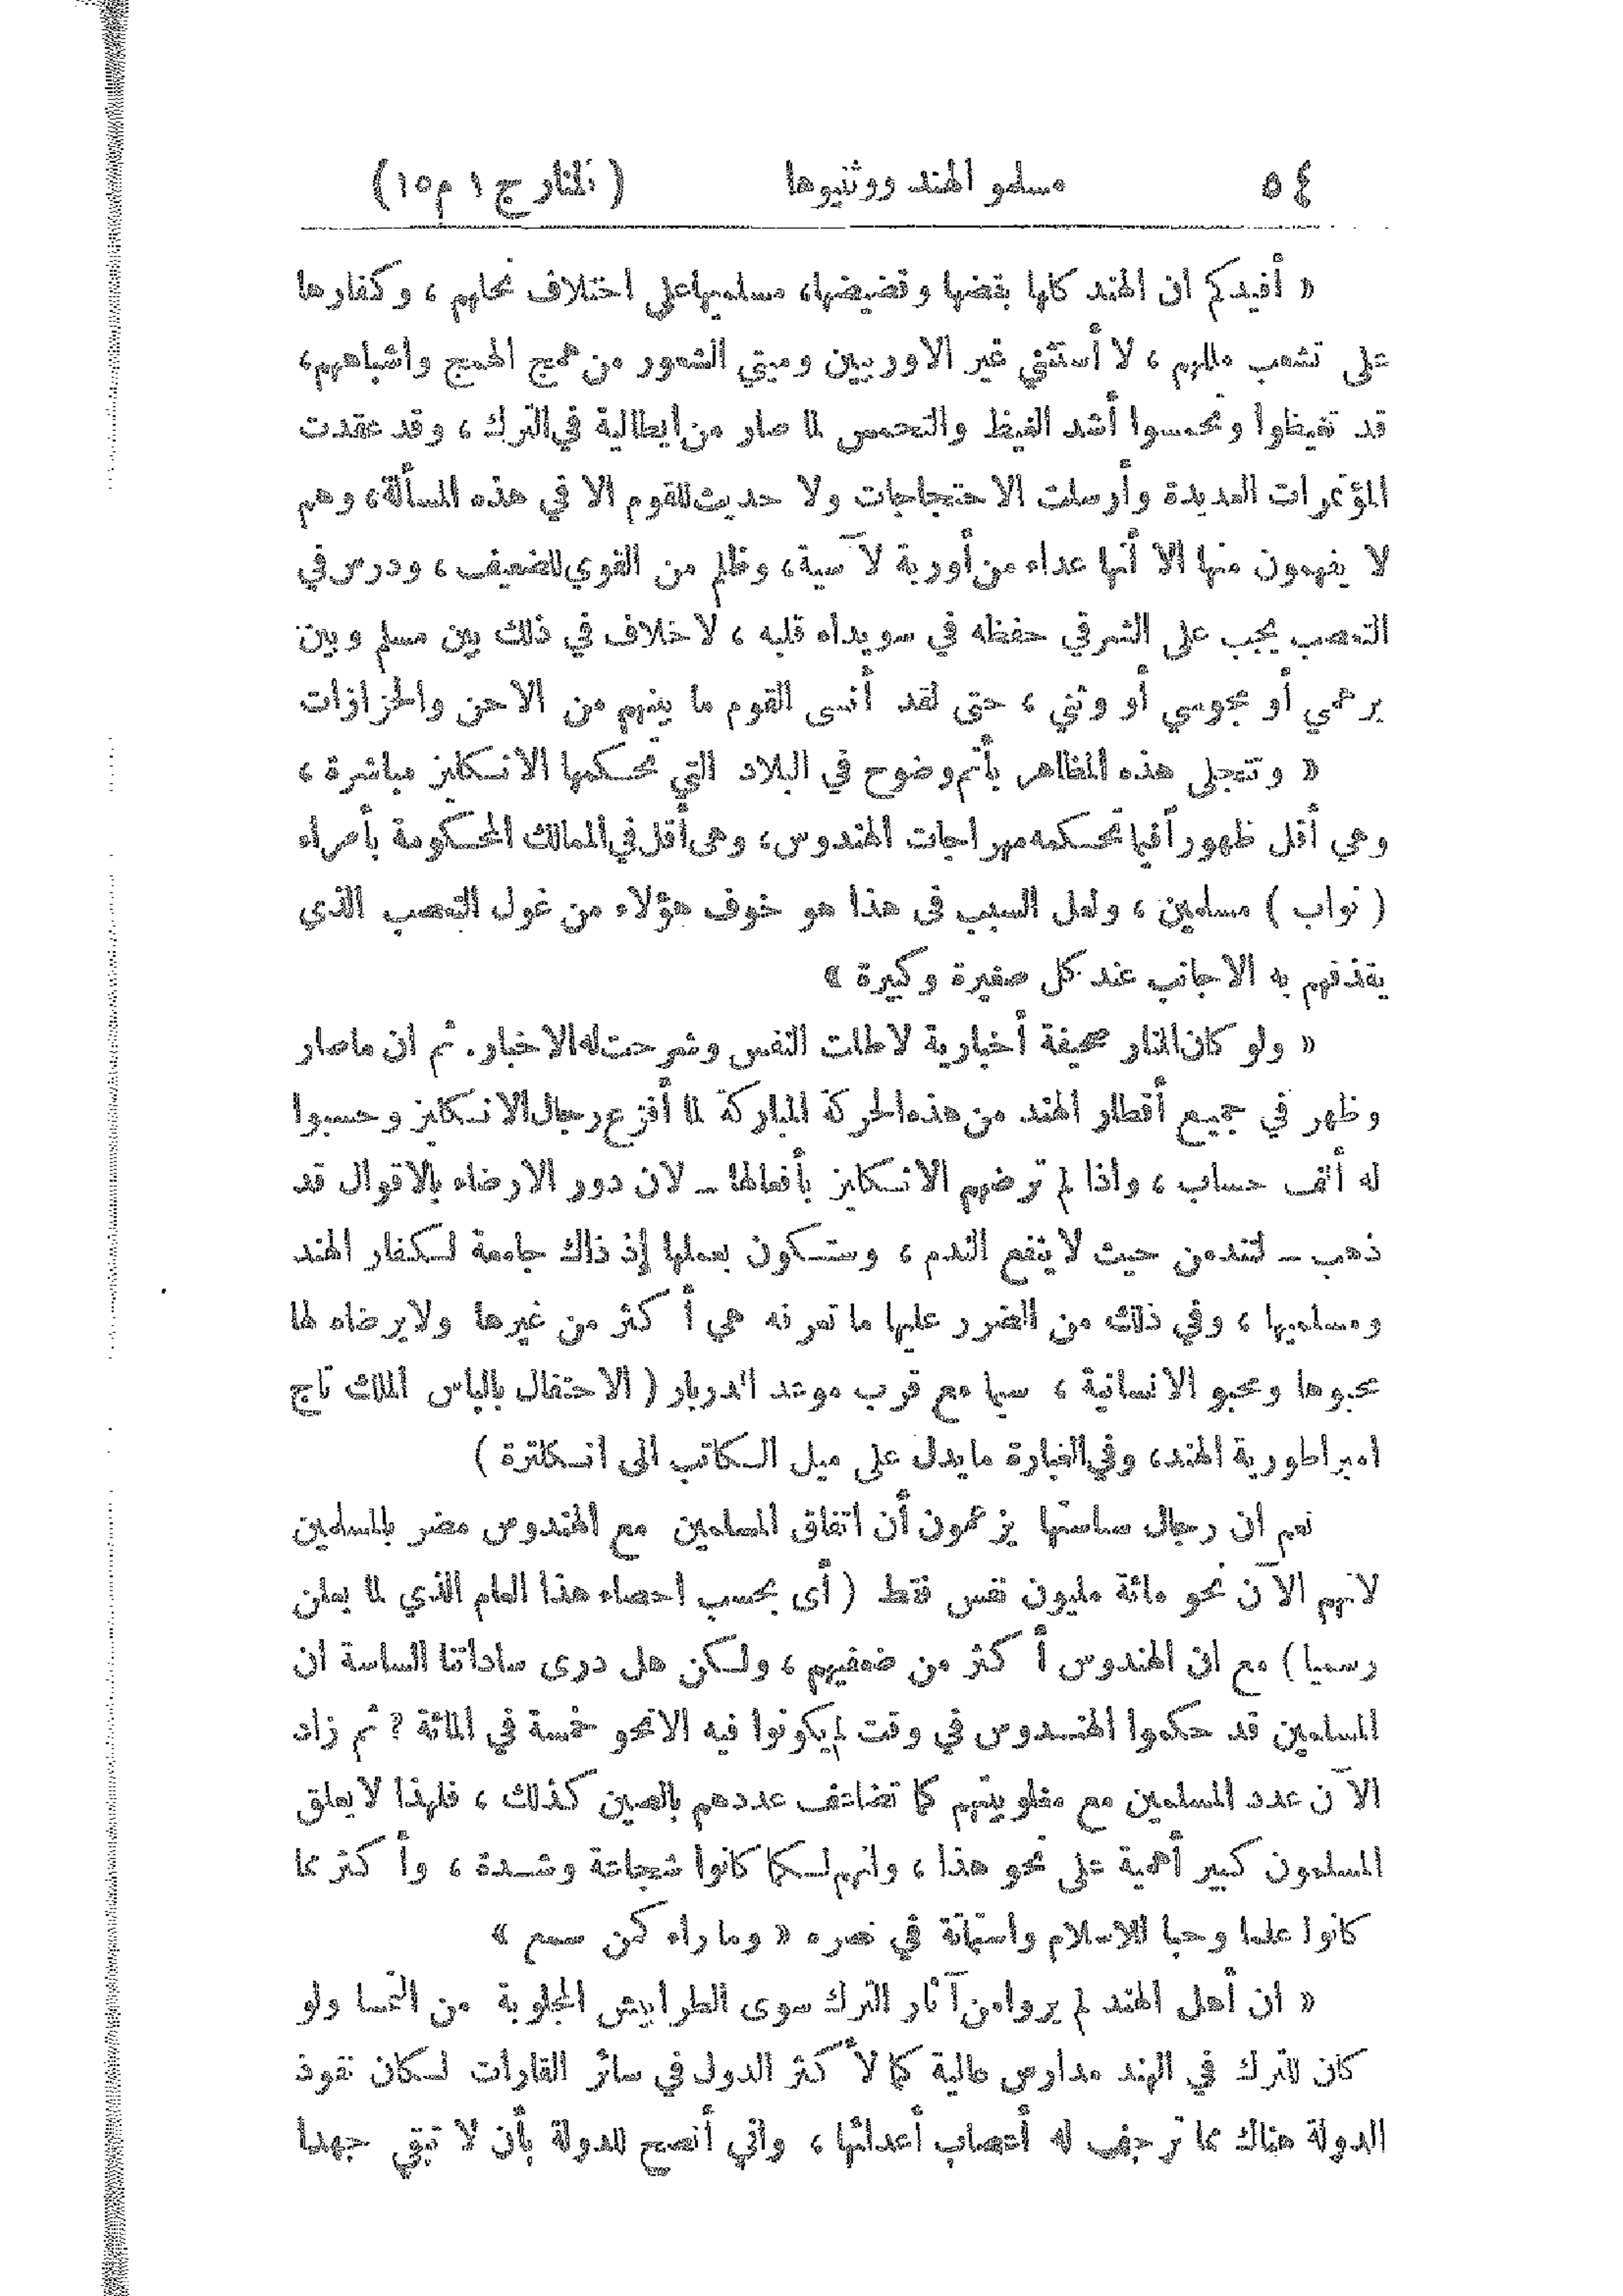 ٥٤ مسلمو الهند ووثنيوها ( المنار ج ١ م ١٥)
« أفيدكم ان الهند كلها بقضها وقضيضها، مسلميها على اختلاف نحلهم ، وكفارها
على تشعب مللهم ، لا أستثني غير الاوربيين وميتي الشعور من همج الهمج واشباههم،
قد تغيظوا وتحمسوا أشد الغيظ والتحمس لما صار من ايطالية في الترك ، وقد عقدت
المؤتمرات العديدة وأرسلت الاحتجاجات ولا حديث للقوم الا في هذه المسألة، وهم
لا يفهمون منها الا أنها عداء من أوربة لآسية، وظلم من القوي للضعيف ، ودرس في
التعصب يجب على الشرقي حفظه في سويداء قلبه ، لا خلاف في ذلك بين مسلم وبين
برهمي أو مجوسي أو وثني ، حتى لقد أنسى القوم ما بينهم من الاحن والحزازات
« وتتجلى هذه المظاهر بأتم وضوح في البلاد التي تحكمها الانكليز مباشرة ،
وهي أقل ظهوراً فيما تحكمه مهراجات الهندوس، وهى أقل في الممالك المحكومة بأمراء
( نواب ) مسلمين ، ولعل السبب فى هذا هو خوف هؤلاء من غول التعصب الذي
يقذفهم به الاجانب عند كل صغيرة وكبيرة »
« ولو كان المنار صحيفة أخبارية لاطلت النفس وشرحت له الاخبار. ثم ان ماصار
وظهر في جميع أقطار الهند من هذه الحركة المباركة لما أفزع رجال الانكليز وحسبوا
له ألف حساب ، واذا لم ترضهم الانكليز بأفعالها ــ لان دور الارضاء بالاقوال قد
ذهب ــ لتندمن حيث لا ينفع الندم ، وستكون بعملها إذ ذاك جامعة لكفار الهند
ومسلميها ، وفي ذلك من الضرر عليها ما تعرفه هي أكثر من غيرها ولا يرضاه لها
محبوها ومحبو الانسانية ، سيما مع قرب موعد الدربار ( الاحتفال بالباس الملك تاج
امبراطورية الهند، وفي العبارة مايدل على ميل الكاتب الى انكلترة )
نعم ان رجال ساستها يزعمون أن اتفاق المسلمين مع الهندوس مضر بالمسلمين
لانهم الآن نحو مائة مليون نفس فقط ( أى بحسب احصاء هذا العام الذي لما يعلن
رسميا ) مع ان الهندوس أكثر من ضعفيهم ، ولكن هل درى ساداتنا الساسة ان
المسلمين قد حكموا الهندوس في وقت لم يكونوا فيه الا نحو خمسة في المائة ؟ ثم زاد
الآن عدد المسلمين مع مغلوبيتهم كما تضاعف عددهم بالصين كذلك ، فلهذا لا يعلق
المسلمون كبير أهمية على نحو هذا ، وانهم لكما كانوا شجاعة وشدة ، وأكثر مما
كانوا علما وحبا للاسلام واستماتة في نصره « وما راء كمن سمع »
« ان أهل الهند لم يروا من آثار الترك سوى الطرابيش المجلوبة من النمسا ولو
كان للترك في الهند مدارس عالية كما لأكثر الدول في سائر القارات لكان نفوذ
الدولة هناك مما ترجف له أعصاب أعدائها ، واني أنصح للدولة بأن لا تبقي جهدا